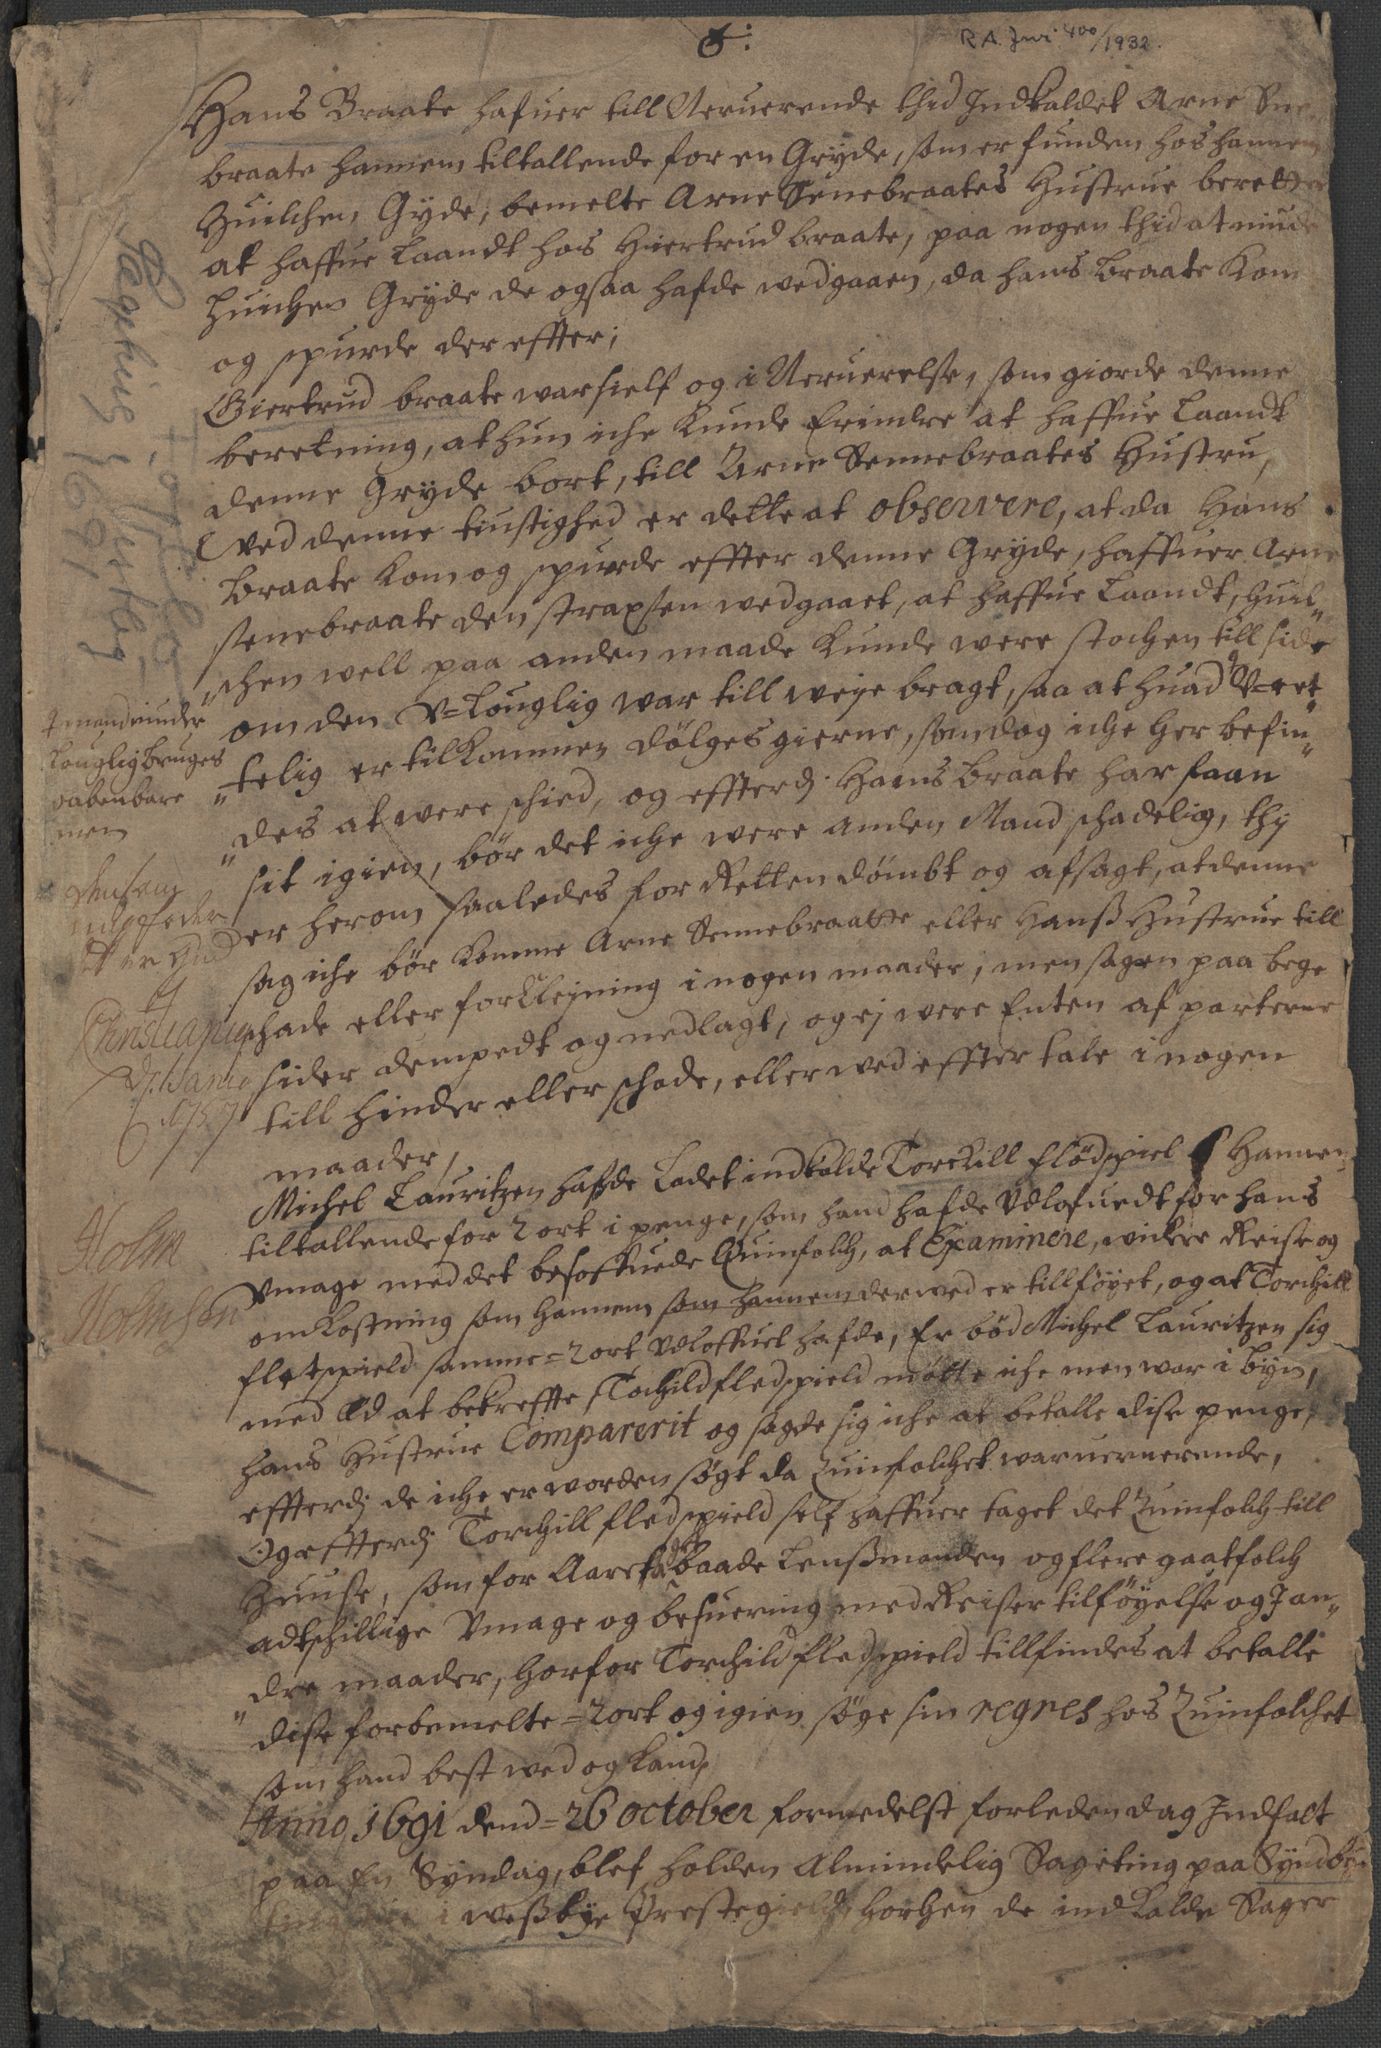 6:
R A. Juri 400/1932.
Hans Braate hafuer till Neruerende thid Indkaldet Arne
braate hannem tiltallende for en Gryde, som er funden hos hannem
Huilchen, Gyde, bemelte Arne Senebraates Hustrue beretter
at haffue Laandt hos Hiertrud braate, paa nogen thid at niude
huichen Gryde de ogsaa hafde wedgaaen, da hans braate Kom
og spurde der effter;
Giertrud braate war sielf og i Neruerelse, som giorde denne
beretning, at hun iche Kunde Erindre at haffue Laandt
denne Gryde bort, till Arne Sennebraates Hustru,
wed denne tiustighed er dette at observere, at da Hans
braate Kom og spurde effter denne Gryde, haffuer Arne
senebraate den straxsen wedgaaet, at haffue Laandt, huil„
„chen well paa anden maade Kunde were stochen till side
om den V=Louglig war till weye bragt, saa at huad V=ret„
„telig er tilkommen dölges gierne, som dog iche her befin„
„des at were schied, og effterdj Hans braate har faan
sit igien, bör det iche were anden Mand schadelig, thj
er herom saaledes for Retten dömbt og afsagt, at denne
sag iche bör Komme Arne Sennebraatte eller Hanß Hustrue till
schade eller forklejning i nogen maader, men sagen paa bege
sider dempedt og nedlagt, og ej were Enten af parterne
till hinder eller schade, eller wed effter tale i nogen
maader,
Michel Lauritzen hafde Ladet indkalde Torckill flödspiel Hannem
tiltallende for 2 ort i penge, som hand hafde Udlofuedt for hans
Vmage med det besoffuede Quinfolch, at Examinere, widere Reise og
omkostning som hannem som hannem der wed er tillföyet, og at Torchill
fletspield samme = 2 ort Udloffuet hafde, Er böd Michel Lauritzen sig
med Ed at bekreffte, Tochild fledspield mötte iche men war i byen,
hans Hustrue Comparerit og sagde sig iche at betalle dise penge,
effterdj de iche er worden sögt da Quinfolchet war neruerende,
Og effterdj Torchill fledspield self haffuer taget det Quinfolch till
Huuse, som for Aarsager baade Lenßmanden og flere gaatfolch
adtschillige Vmage og besuering med Reiser tilföyelse og J an„
„dre maader, Horfor Torchild fledspield tillfindes at betalle
dise forbemelte = 2 ort og igien söge sin regres hos Quinfolchet
som hand best wed og Kand,
Anno 1691 dend = 26 October formedelst forleden dag Indfalt
paa En Syndag, blef holden Almindelig Sageting paa Syndbye
i weßbye Prestegield, horhen de indkalde Sager
1691
Louglig bruges
men
Christiania
1757
Holm
Holmsen